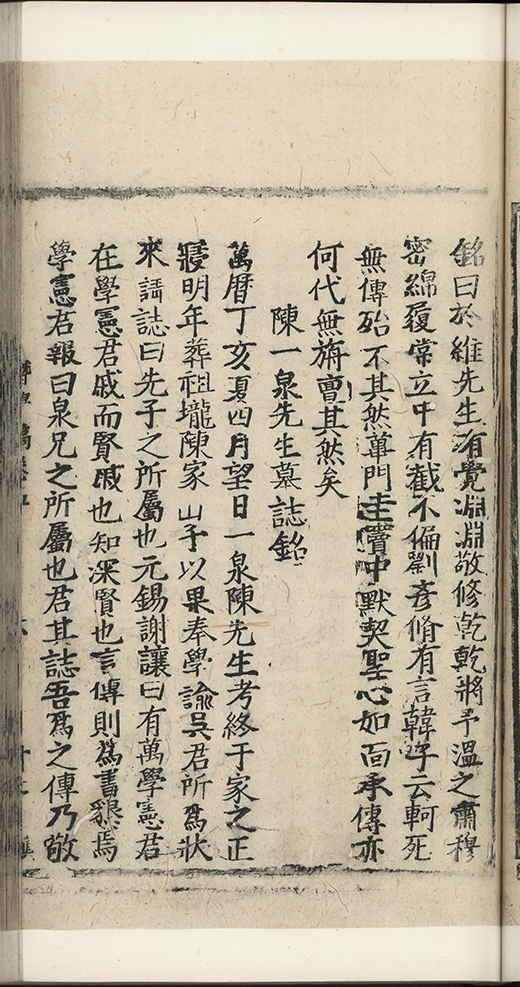 銘曰於維先生有覺淵淵敬修乾乾將予溫之肅穆
密綿履常立中有截不偏劉彥脩有言韓子云軻死
無傳殆不其然蓽門圭竇中默契聖心如面承傳亦
何代無旃亶其然矣
陳一泉先生墓誌銘
萬曆丁亥夏四月望日一泉陳先生考終于家之正
寢明年葬祖壠陳家山子以果奉學諭吳君所為狀
來請誌曰先子之所屬也元錫謝讓曰有萬學憲君
在學憲君戚而賢戚也知深賢也言傳則為書懇焉
學憲君報曰泉兄之所屬也君其誌吾為之傳乃敬